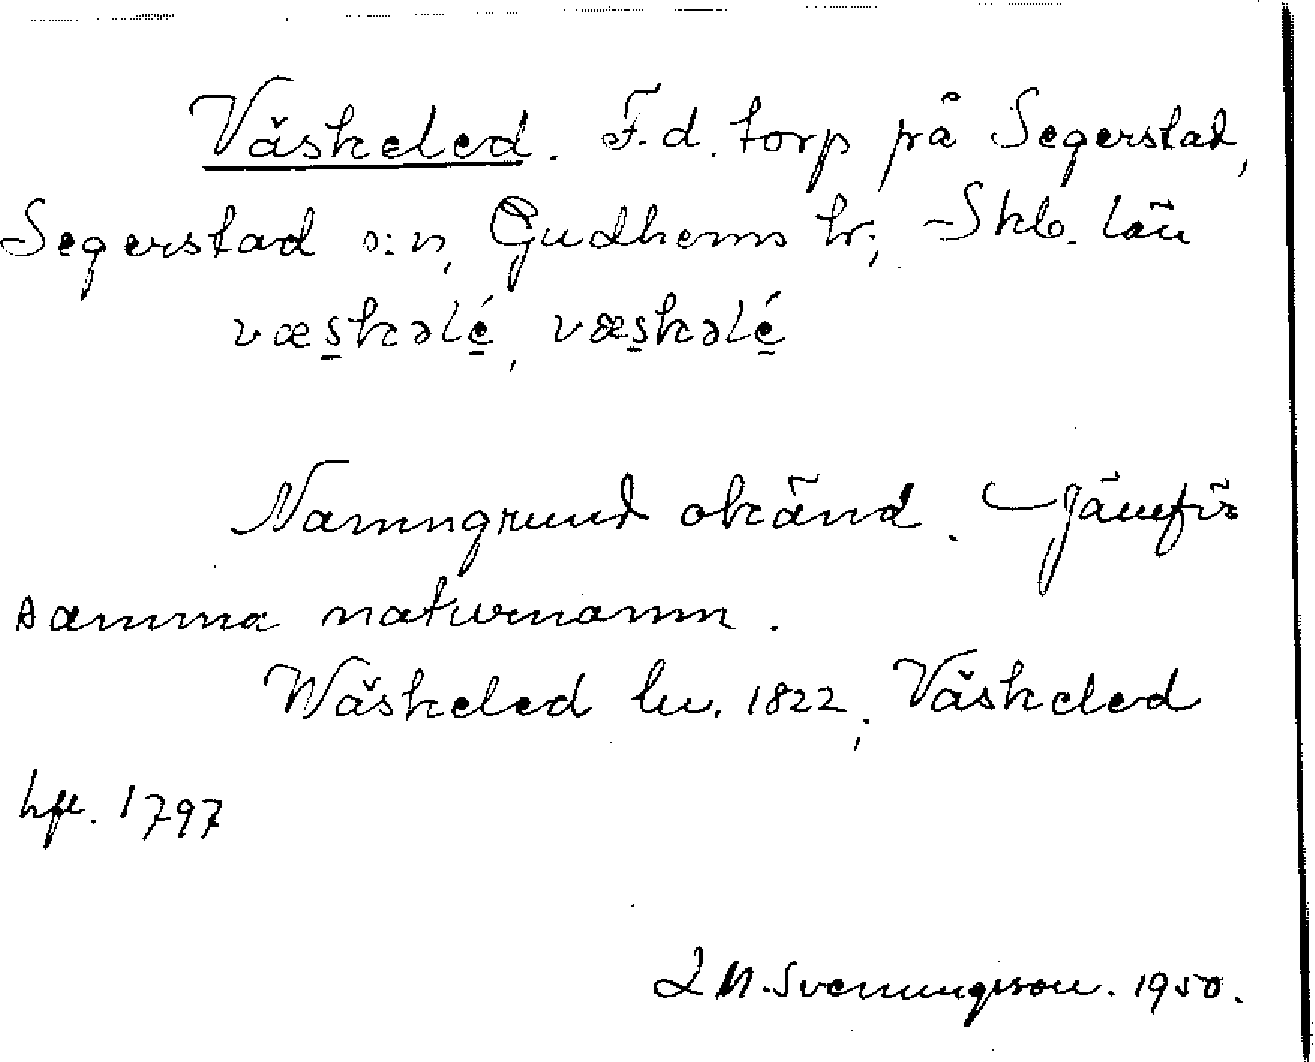 Väskeled. F.d. torp på Segerstad,
Segerstad s:n, Gudhems hr, Skb. län
væskəlé, væskəlé
Namngrund okänd. Jämför
samma naturnamn.
Wäskeled lu. 1822, Väskeled
hfl. 1797
M. Svenungsson. 1950.